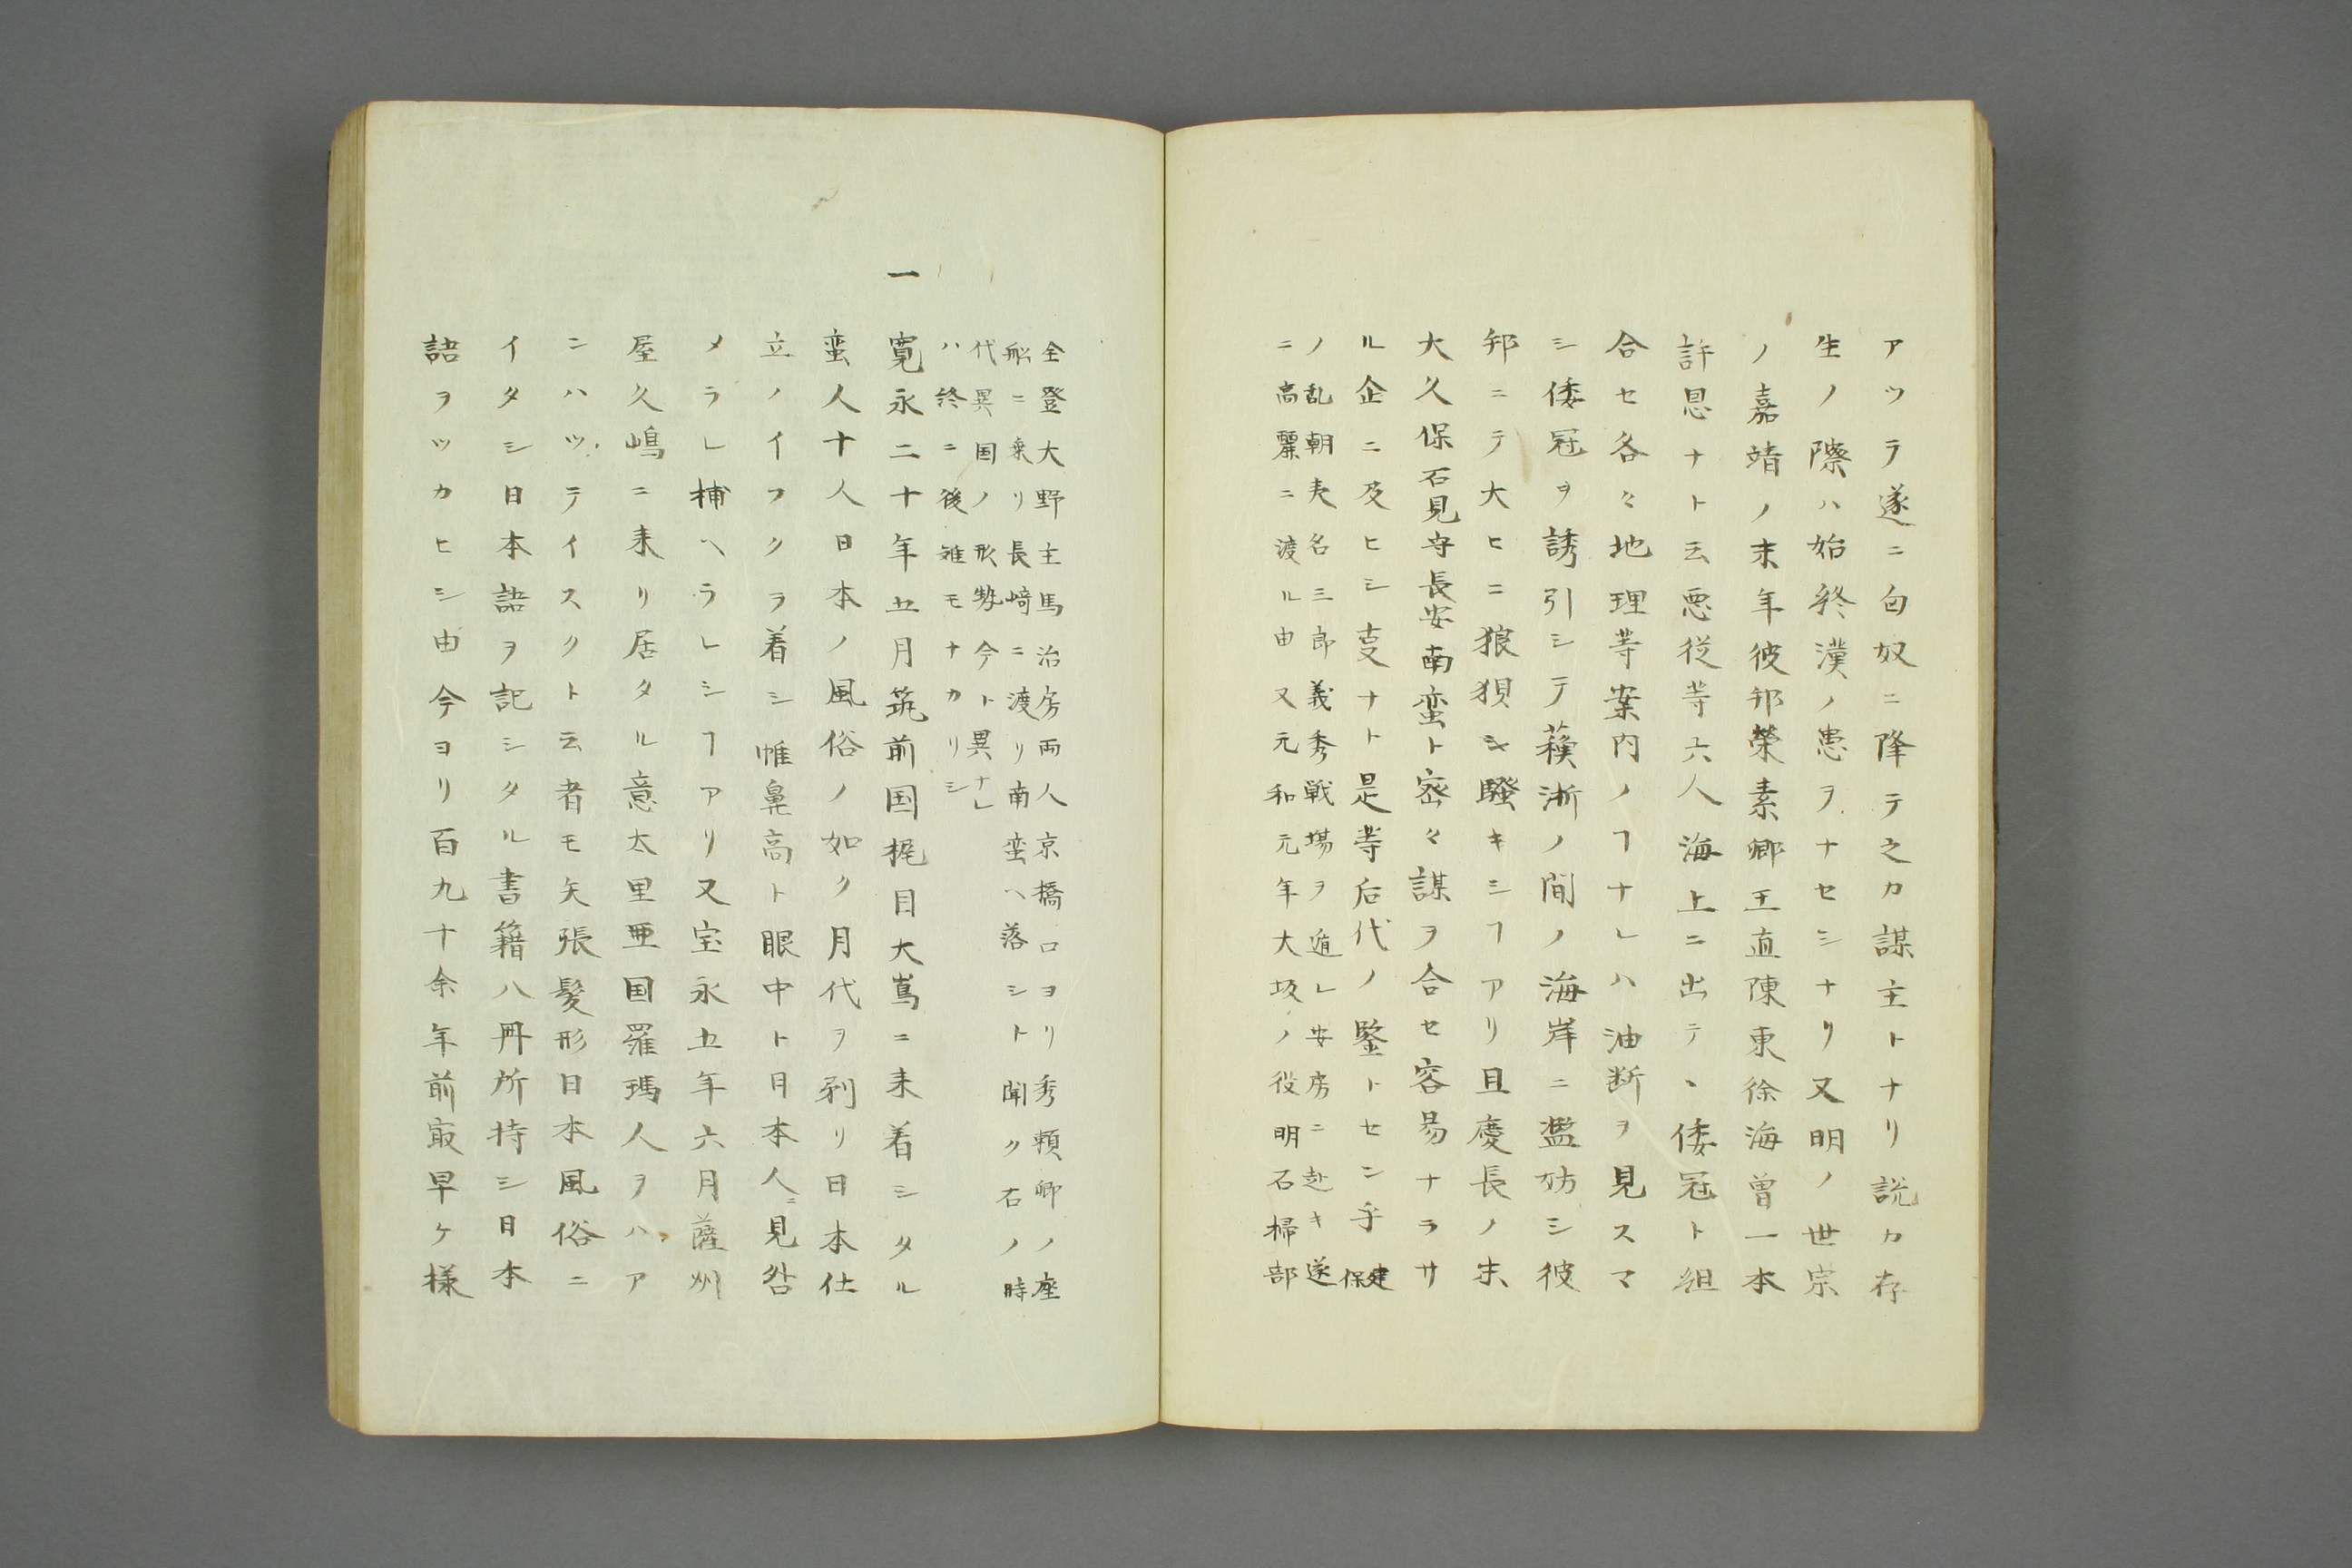 アツラ遂ニ匈奴ニ降テ之カ謀主トナリ説カ存
生ノ際ハ始終漢ノ患ヲナセシナリ又明ノ世宗
ノ嘉靖ノ末年彼邦榮素卿王直陳東徐海曽一本
許恩ナト云悪従等六人海上ニ出テヽ倭冠ト組
合セ各々地理等案内ノヿナレハ油断ヲ見スマ
シ倭冠ヲ誘引シテ蘓浙ノ間ノ海岸ニ濫妨シ彼
邦ニテ大ヒニ狼狽シ騒キシヿアリ且慶長ノ末
大久保石見守長安南蛮ト密々謀ヲ合セ容易ナラサ
ル企ニ及ヒシ事ナト是等后代ノ鑒トセン乎 建保
ノ乱朝夷名三郎義秀戦場ヲ遁レ安房ニ赴キ遂
ニ高麗ニ渡ル由又元和元年大坂ノ役明石掃部
全登大野主馬治房両人京橋口ヨリ秀頼卿ノ座
船ニ乗リ長﨑ニ渡リ南蛮ヘ落シト聞ク右ノ時
代異国ノ形勢今ト異ナレ
ハ終ニ後雖モナカリシ
一 寛永二十年五月筑前国梶目大嶌ニ来着シタル
蛮人十人日本ノ風俗ノ如ク月代ヲ剃リ日本仕
立ノイフクヲ着シ惟鼻高ト眼中ト日本人ニ見咎
メラレ捕ヘラレシヿアリ又宝永五年六月薩州
屋久嶋ニ来リ居タル意太里亜国羅瑪人ヲハア
ンハツテイスクト云者モ矢張髪形日本風俗ニ
イタシ日本語ヲ記シタル書籍八冊所持シ日本
語ヲツカヒシ由今ヨリ百九十余年前㝡早ケ様